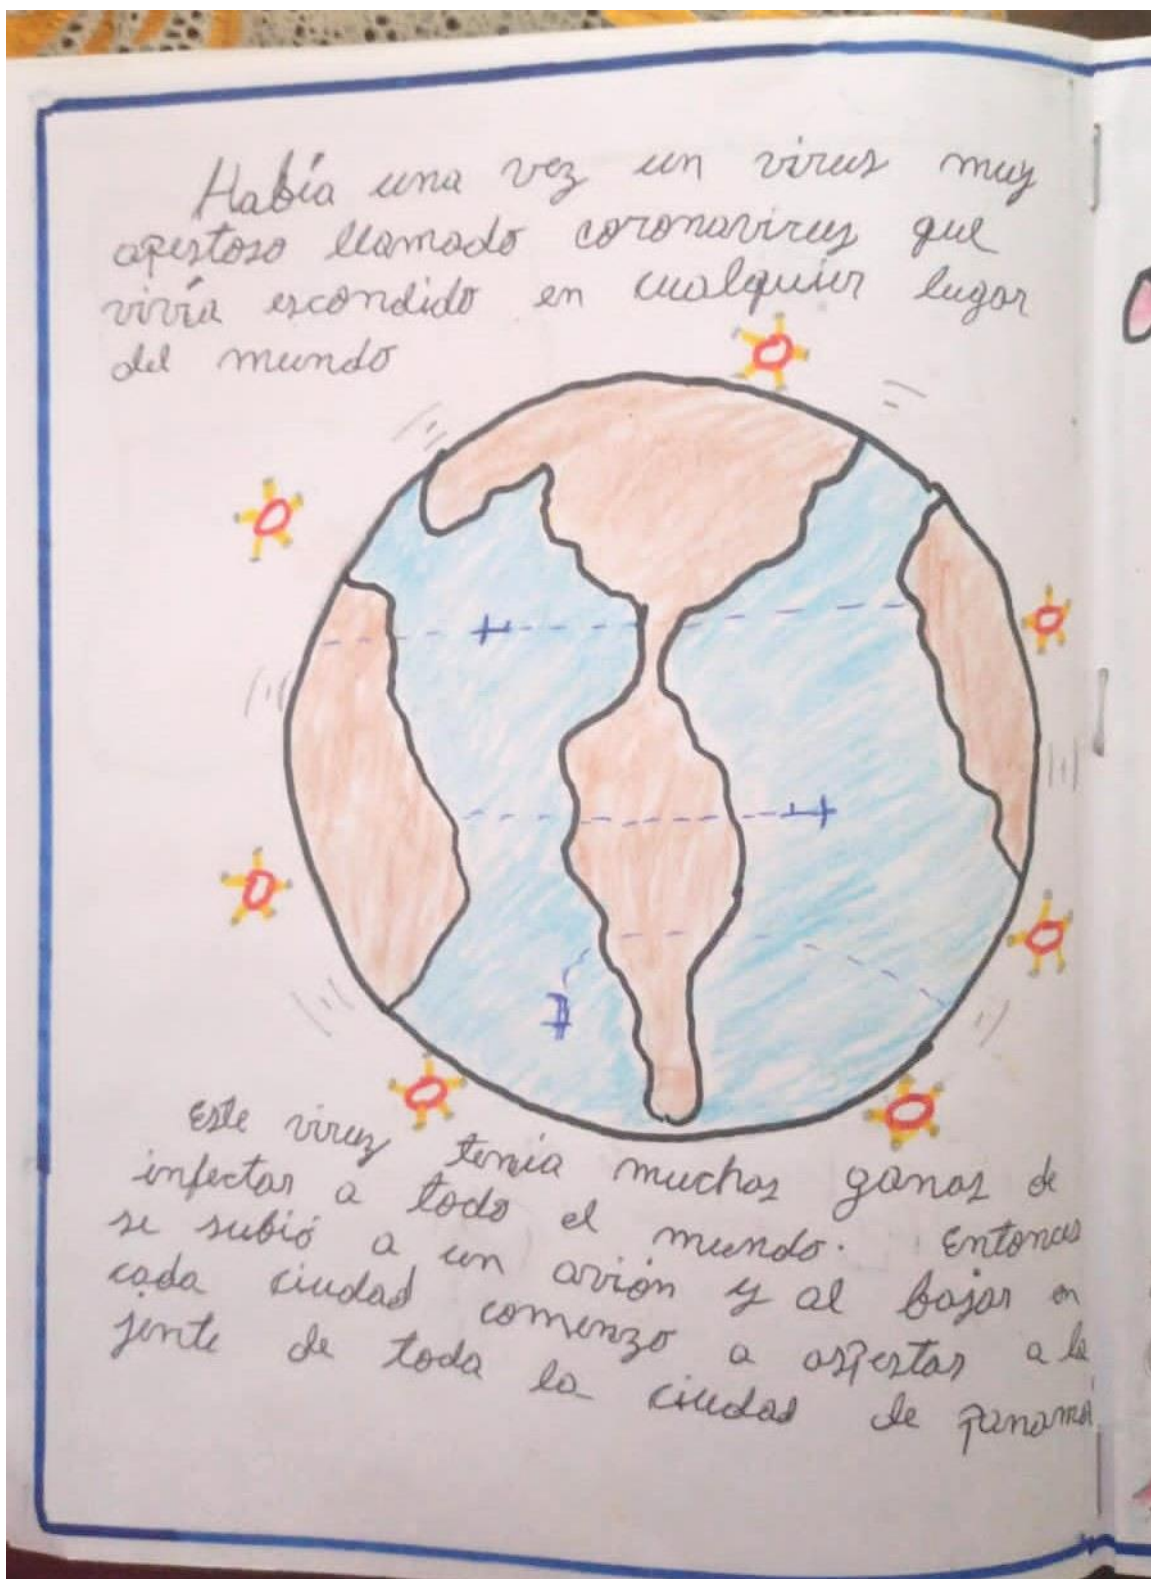 Había una vez un virus muy
apestoso llamado coronavirus que
vivía escondido en cualquier lugar
del mundo
Este virus tenía muchas ganas de
infectar a todo el mundo. Entonces
se subió a un avión y al bajar en
cada ciudad comenzo a aspestar a la
jente de toda la ciudad de panamá